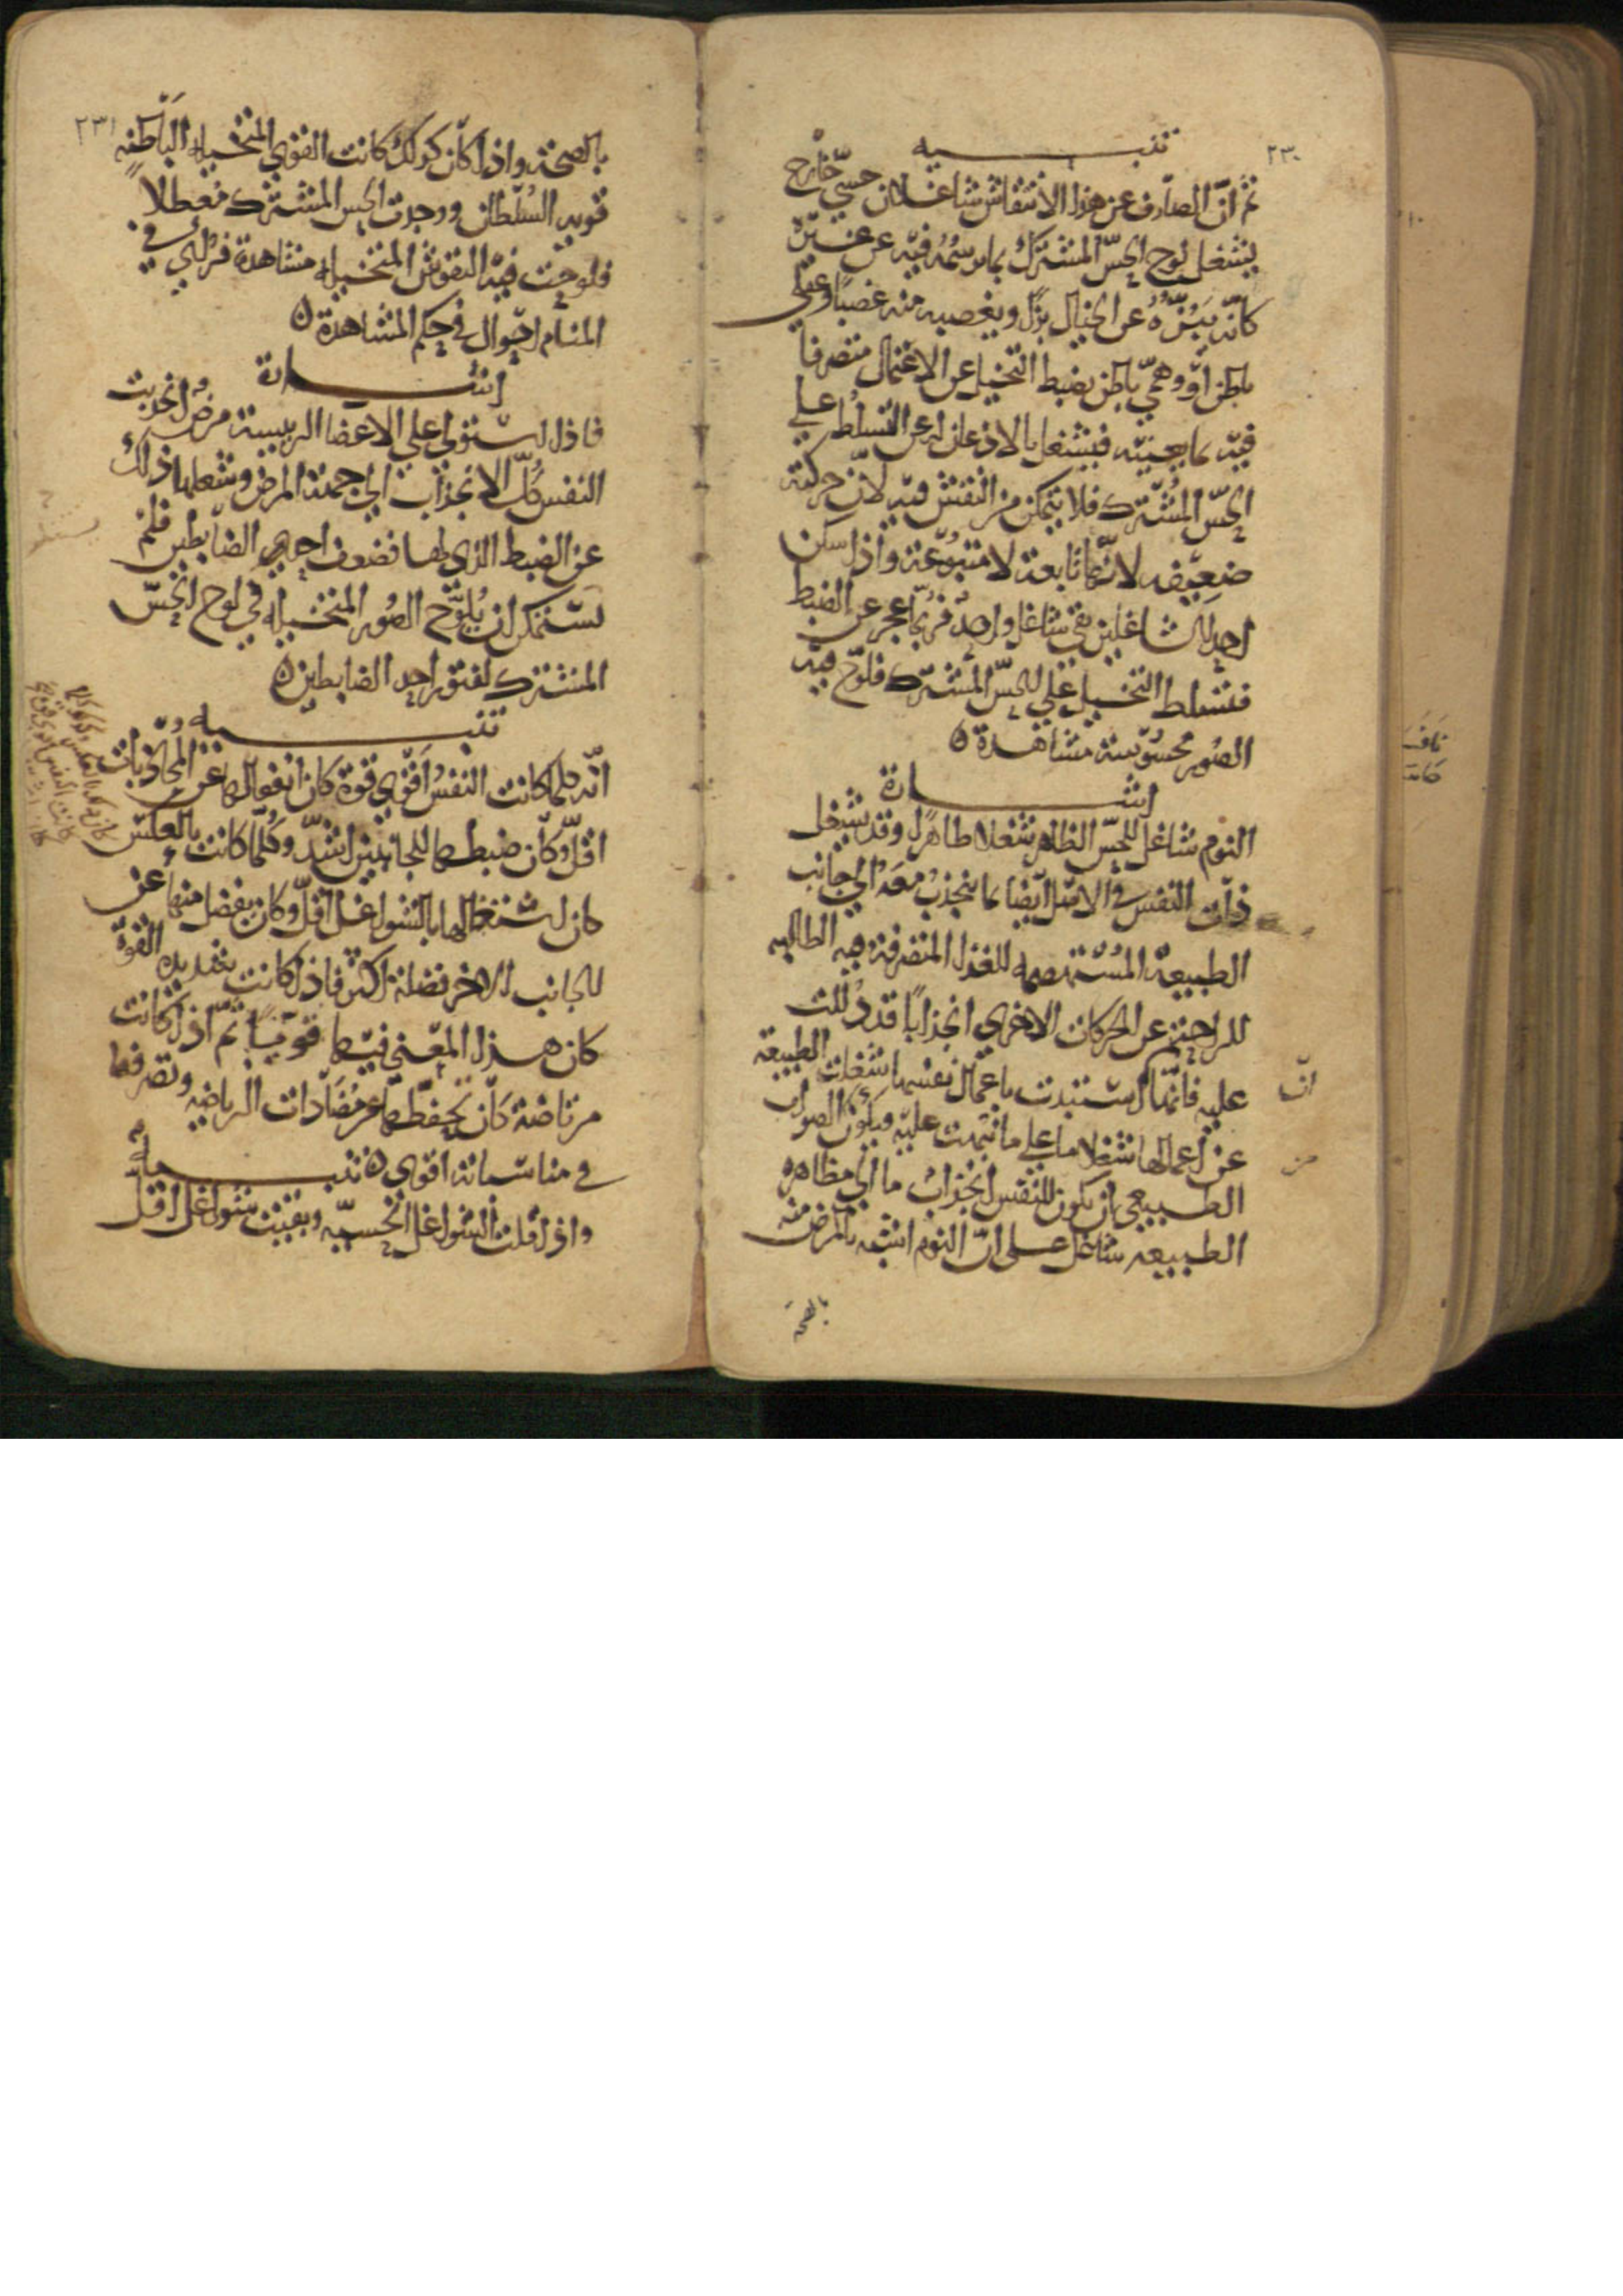 ٢٣٠
تنبيه
ثم ان الصارف عن هذا الانتقاش شاغلان حسي خارج
يشغل لوح الحس المشترك بما يرسمه فيه عن غيره
كانه يبزه عن الخيال بزا ويغصبه منه غصبا وعقلي
باطن او وهمي باطن يضبط التخيل عن الاعتمال متصرفا
فيه بما يعينه فيشتغل بالاذعان له عن التسلط على
الحس المشترك فلا يتمكن من النقش فيه لان حركته
ضعيفه لانها تابعة لا متبوعة واذا سكن
احد الشاغلين بقي شاغل واحد فربما عجز عن الضبط
فتسلط التخيل على الحس المشترك فلوح فيه
الصور محسوسة مشاهدة ه
اشارة
النوم شاغل للحس الظاهر شغلا ظاهرا وقد يشغل
ذات النفس في الاصل ايضا بما ينجذب معه الى جانب
الطبيعة المستهضمه للغذا المتصرفة فيه الطالبه
للراحة عن الحركات الاخرى انجذابا قد دللت
عليه فانها ان استبدت باعمال نفسها شغلت الطبيعة
ان
عن اعمالها شغلا ما على ما نبهت عليه ويكون الصواب
من
الطبيعي ان يكون للنفس انجذاب ما الى مظاهرة
الطبيعه شاغل على ان النوم اشبه بالمرض منه
بالصحة
٢٣١
بالصحة واذا كان كذلك كانت القوى المتخيله الباطنه
قويه السلطان ووجدت الحس المشترك معطلا
فلوحت فيه النقوش المتخيله مشاهدة فترى في
المنام احوال في حكم المشاهدة ه
اشارة
فاذا استولى على الاعضا الرييسة مرض انجذبت
النفس كل الانجذاب الى جهة المرض وشغلها ذلك
عن الضبط الذي لها فضعف احد الضابطين فلم
يستنكر ان يلوح الصور المتخيله في لوح الحس
المشترك لفتور احد الضابطين ه
تنبيه
انه كلما كانت النفس اقوى قوة كان انفعالها عن المحاذيات
اقل وكان ضبطها للجانبين اشد وكلما كانت بالعكس
كان بالعكس وكذلك كلما
كانت النفس اقوى قوة
كان اشتغالها بالشواغل اقل وكان يفضل منها عن
للجانب الاخر فضلة اكثر فاذا كانت شديدة القوة
كان هذا المعنى فيها قويا ثم اذا كانت
مرتاضة كان تحفظها عن مضادات الرياضه وتصرفها
في مناسباته اقوى ه تنبيه
واذا قلت الشواغل الحسيه وبقيت شواغل اقل